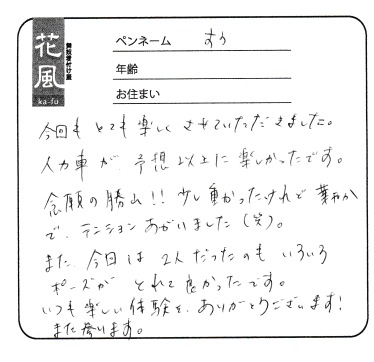 花風
舞妓着付け屋
ka-fu
ペンネーム すう
年齢
お住まい
今回もとても楽しくさせていただきました。
人力車が、予想以上に楽しかったです。
念願の勝山!! 少し重かったけれど華やか
で、テンションあがりました(笑)。
また、今日は2人だったのもいろいろ
ポーズがとれて良かったです。
いつも楽しい体験を、ありがとうございます!
また参ります。